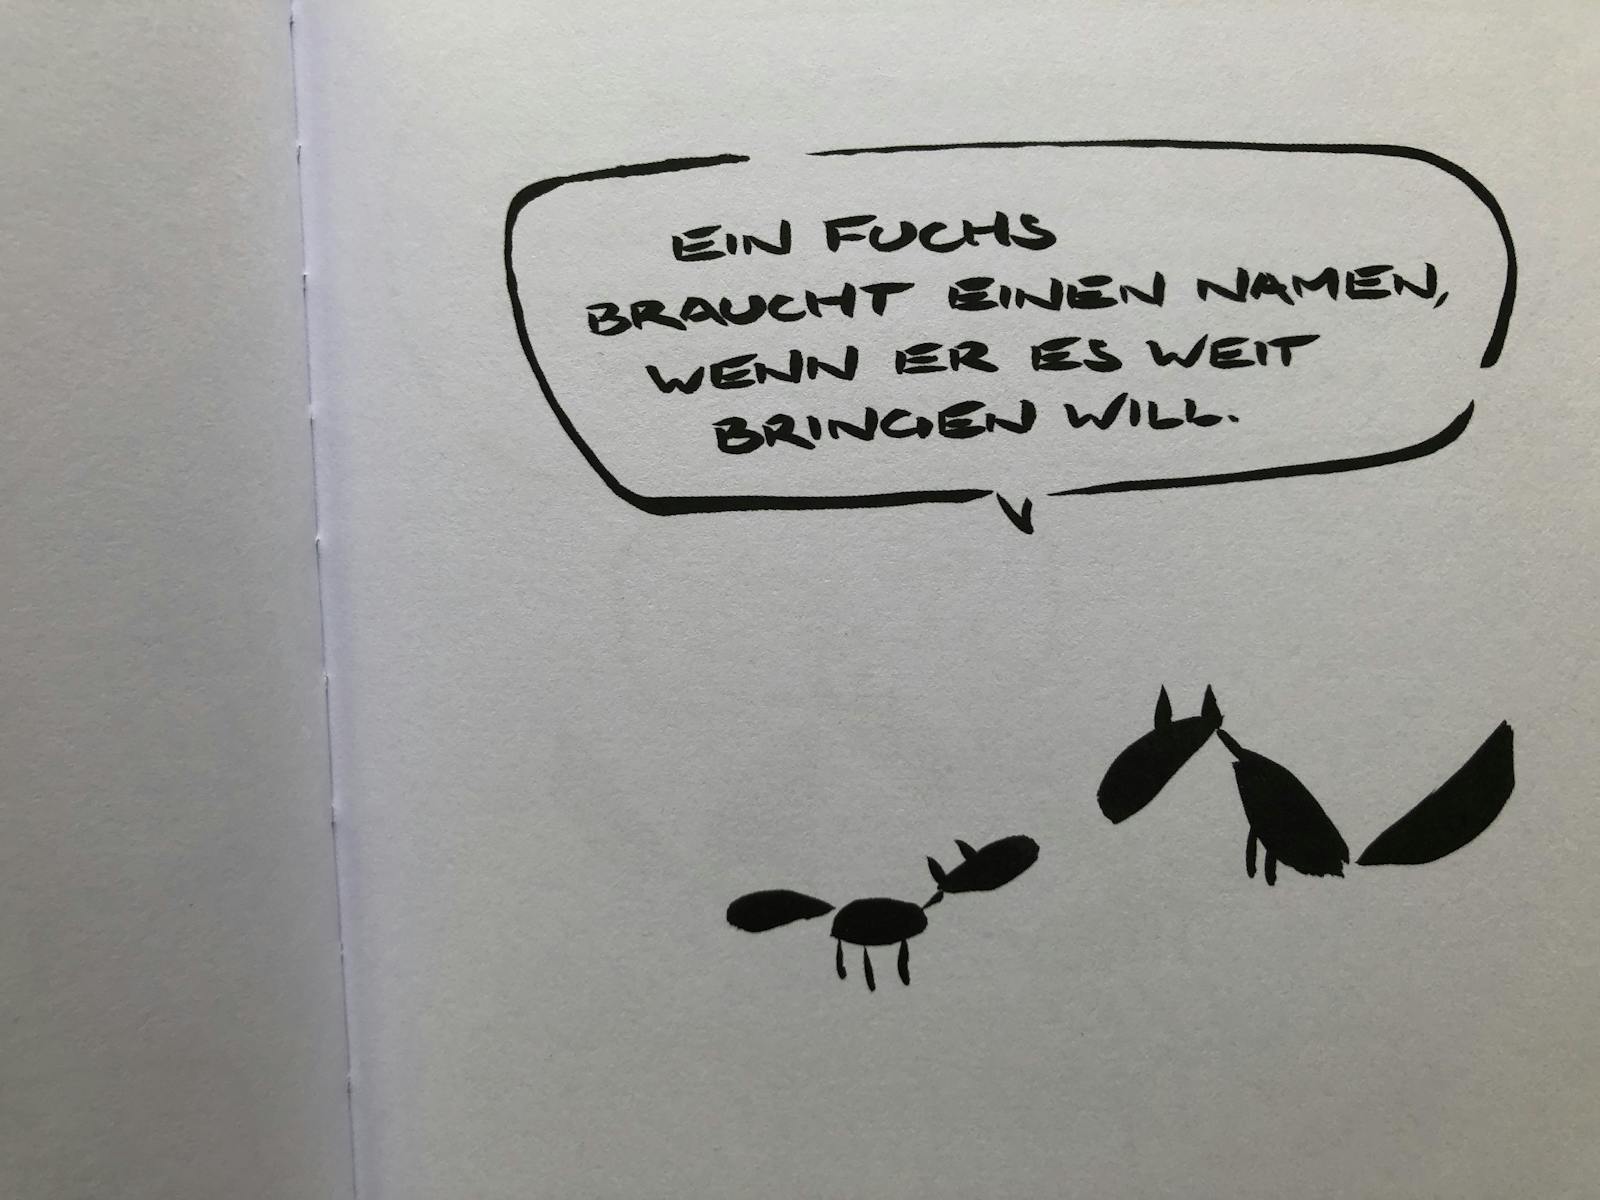 EIN FUCHS
BRAUCHT EINEN NAMEN,
WENN ER ES WEIT
BRINGEN WILL.